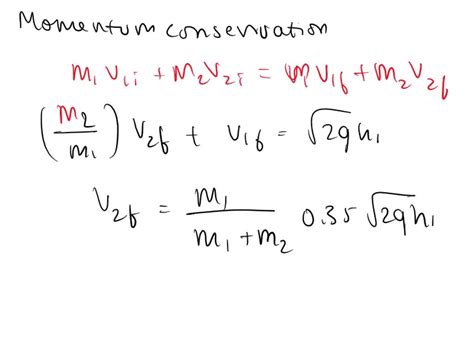 Momentum conservation
m₁ v₁ᵢ + m₂ v₂ᵢ = m v₁f + m₂ v₂f
(m₂/m₁) v₂f + v₁f = √2gh₁
v₂f = m₁/(m₁+m₂) 0.35 √2gh₁